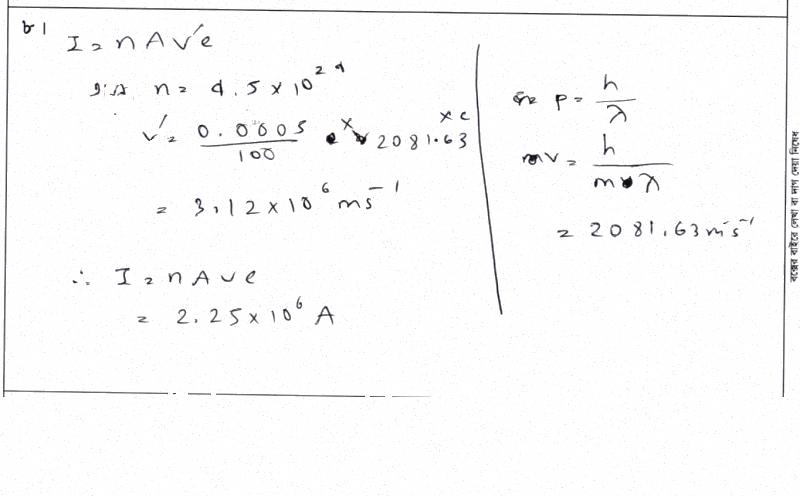 ৮।
I = nAV'e
n = 4.5 × 10²⁹
V' = 0.0005 / 100 × 2081.63 × c
= 3.12 × 10⁶ ms⁻¹
∴ I = nAve
= 2.25 × 10⁶ A
p = h / λ
v = h / mλ
= 2081.63 ms⁻¹
বক্সের বাইরে লেখা বা দাগ দেয়া নিষেধ